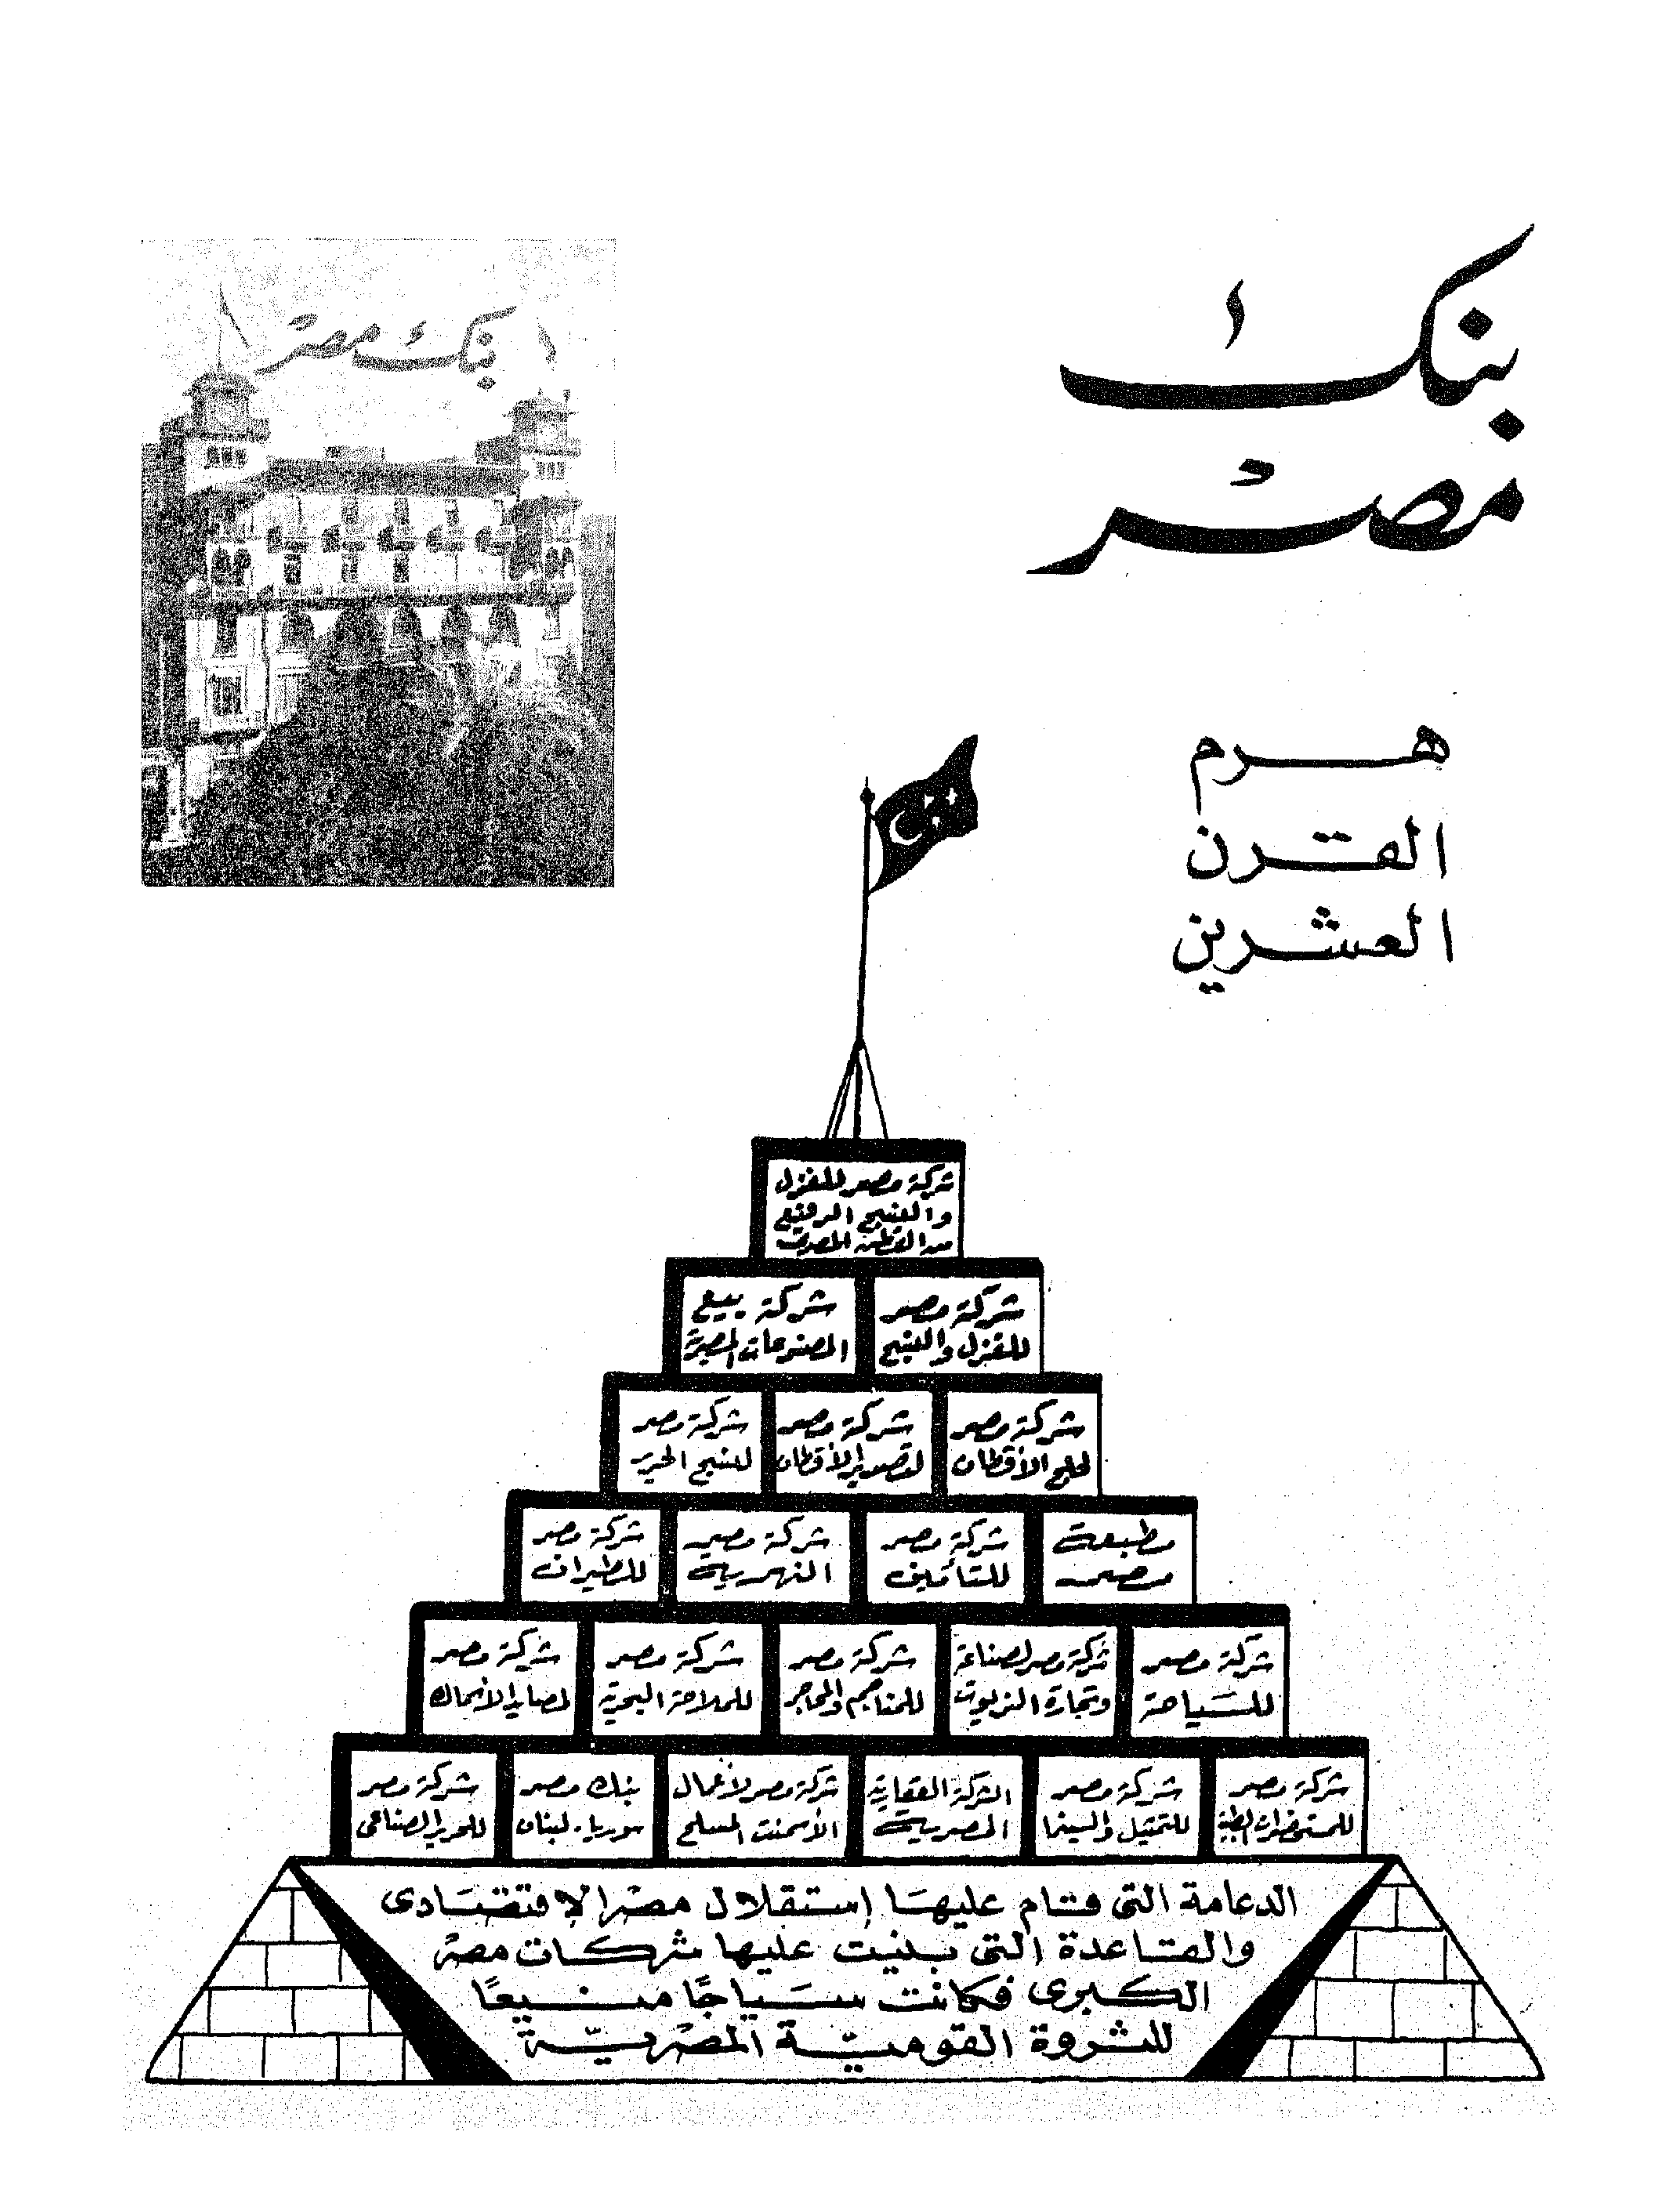 بنك
مصر
بنك مصر
هرم
القرن
العشرين
شركة مصر للغزل
والنسيج الرفيع
من القطن المصرى
شركة مصر
للغزل والنسيج
شركة بيع
المصنوعات المصرية
شركة مصر
لحلج الأقطان
شركة مصر
لتصدير الأقطان
شركة مصر
لنسج الحرير
مطبعة
مصر
شركة مصر
للتأمين
شركة مصر
النهرية
شركة مصر
للطيران
شركة مصر
للسياحة
شركة مصر لصناعة
وتجارة الزيوت
شركة مصر
للمناجم والمحاجر
شركة مصر
للملاحة البحرية
شركة مصر
لمصايد الأسماك
شركة مصر
للمستحضرات الطبية
شركة مصر
للتمثيل والسينما
الشركة العقارية
المصرية
شركة مصر لأعمال
الأسمنت المسلح
بنك مصر
سوريا - لبنان
شركة مصر
للحرير الصناعى
الدعامة التى قام عليها إستقلال مصر الإقتصادى
والقاعدة التى بنيت عليها شركات مصر
الكبرى فكانت سياجًا منيعًا
للثروة القومية المصرية